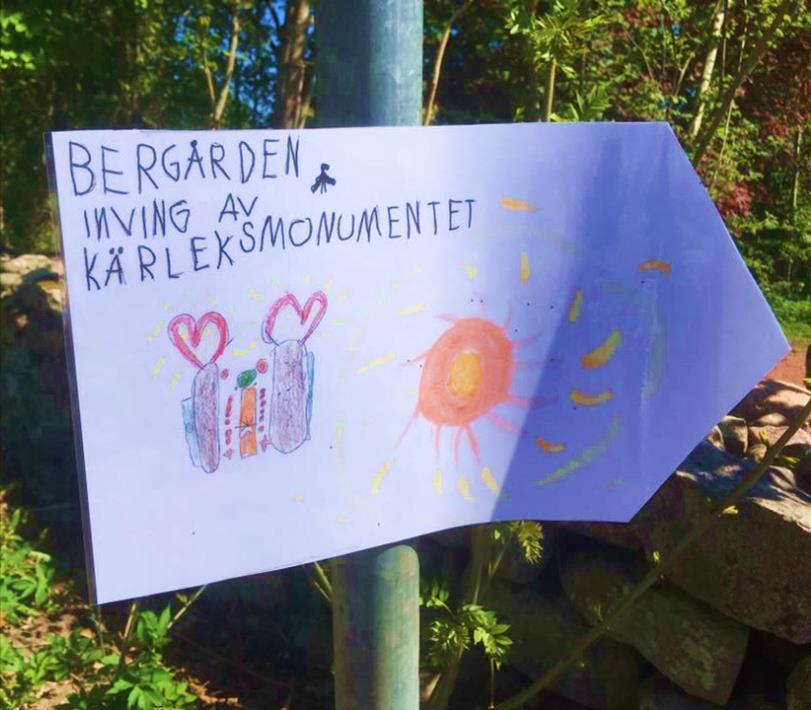 BERGÅRDEN
INVING AV
KÄRLEKSMONUMENTET